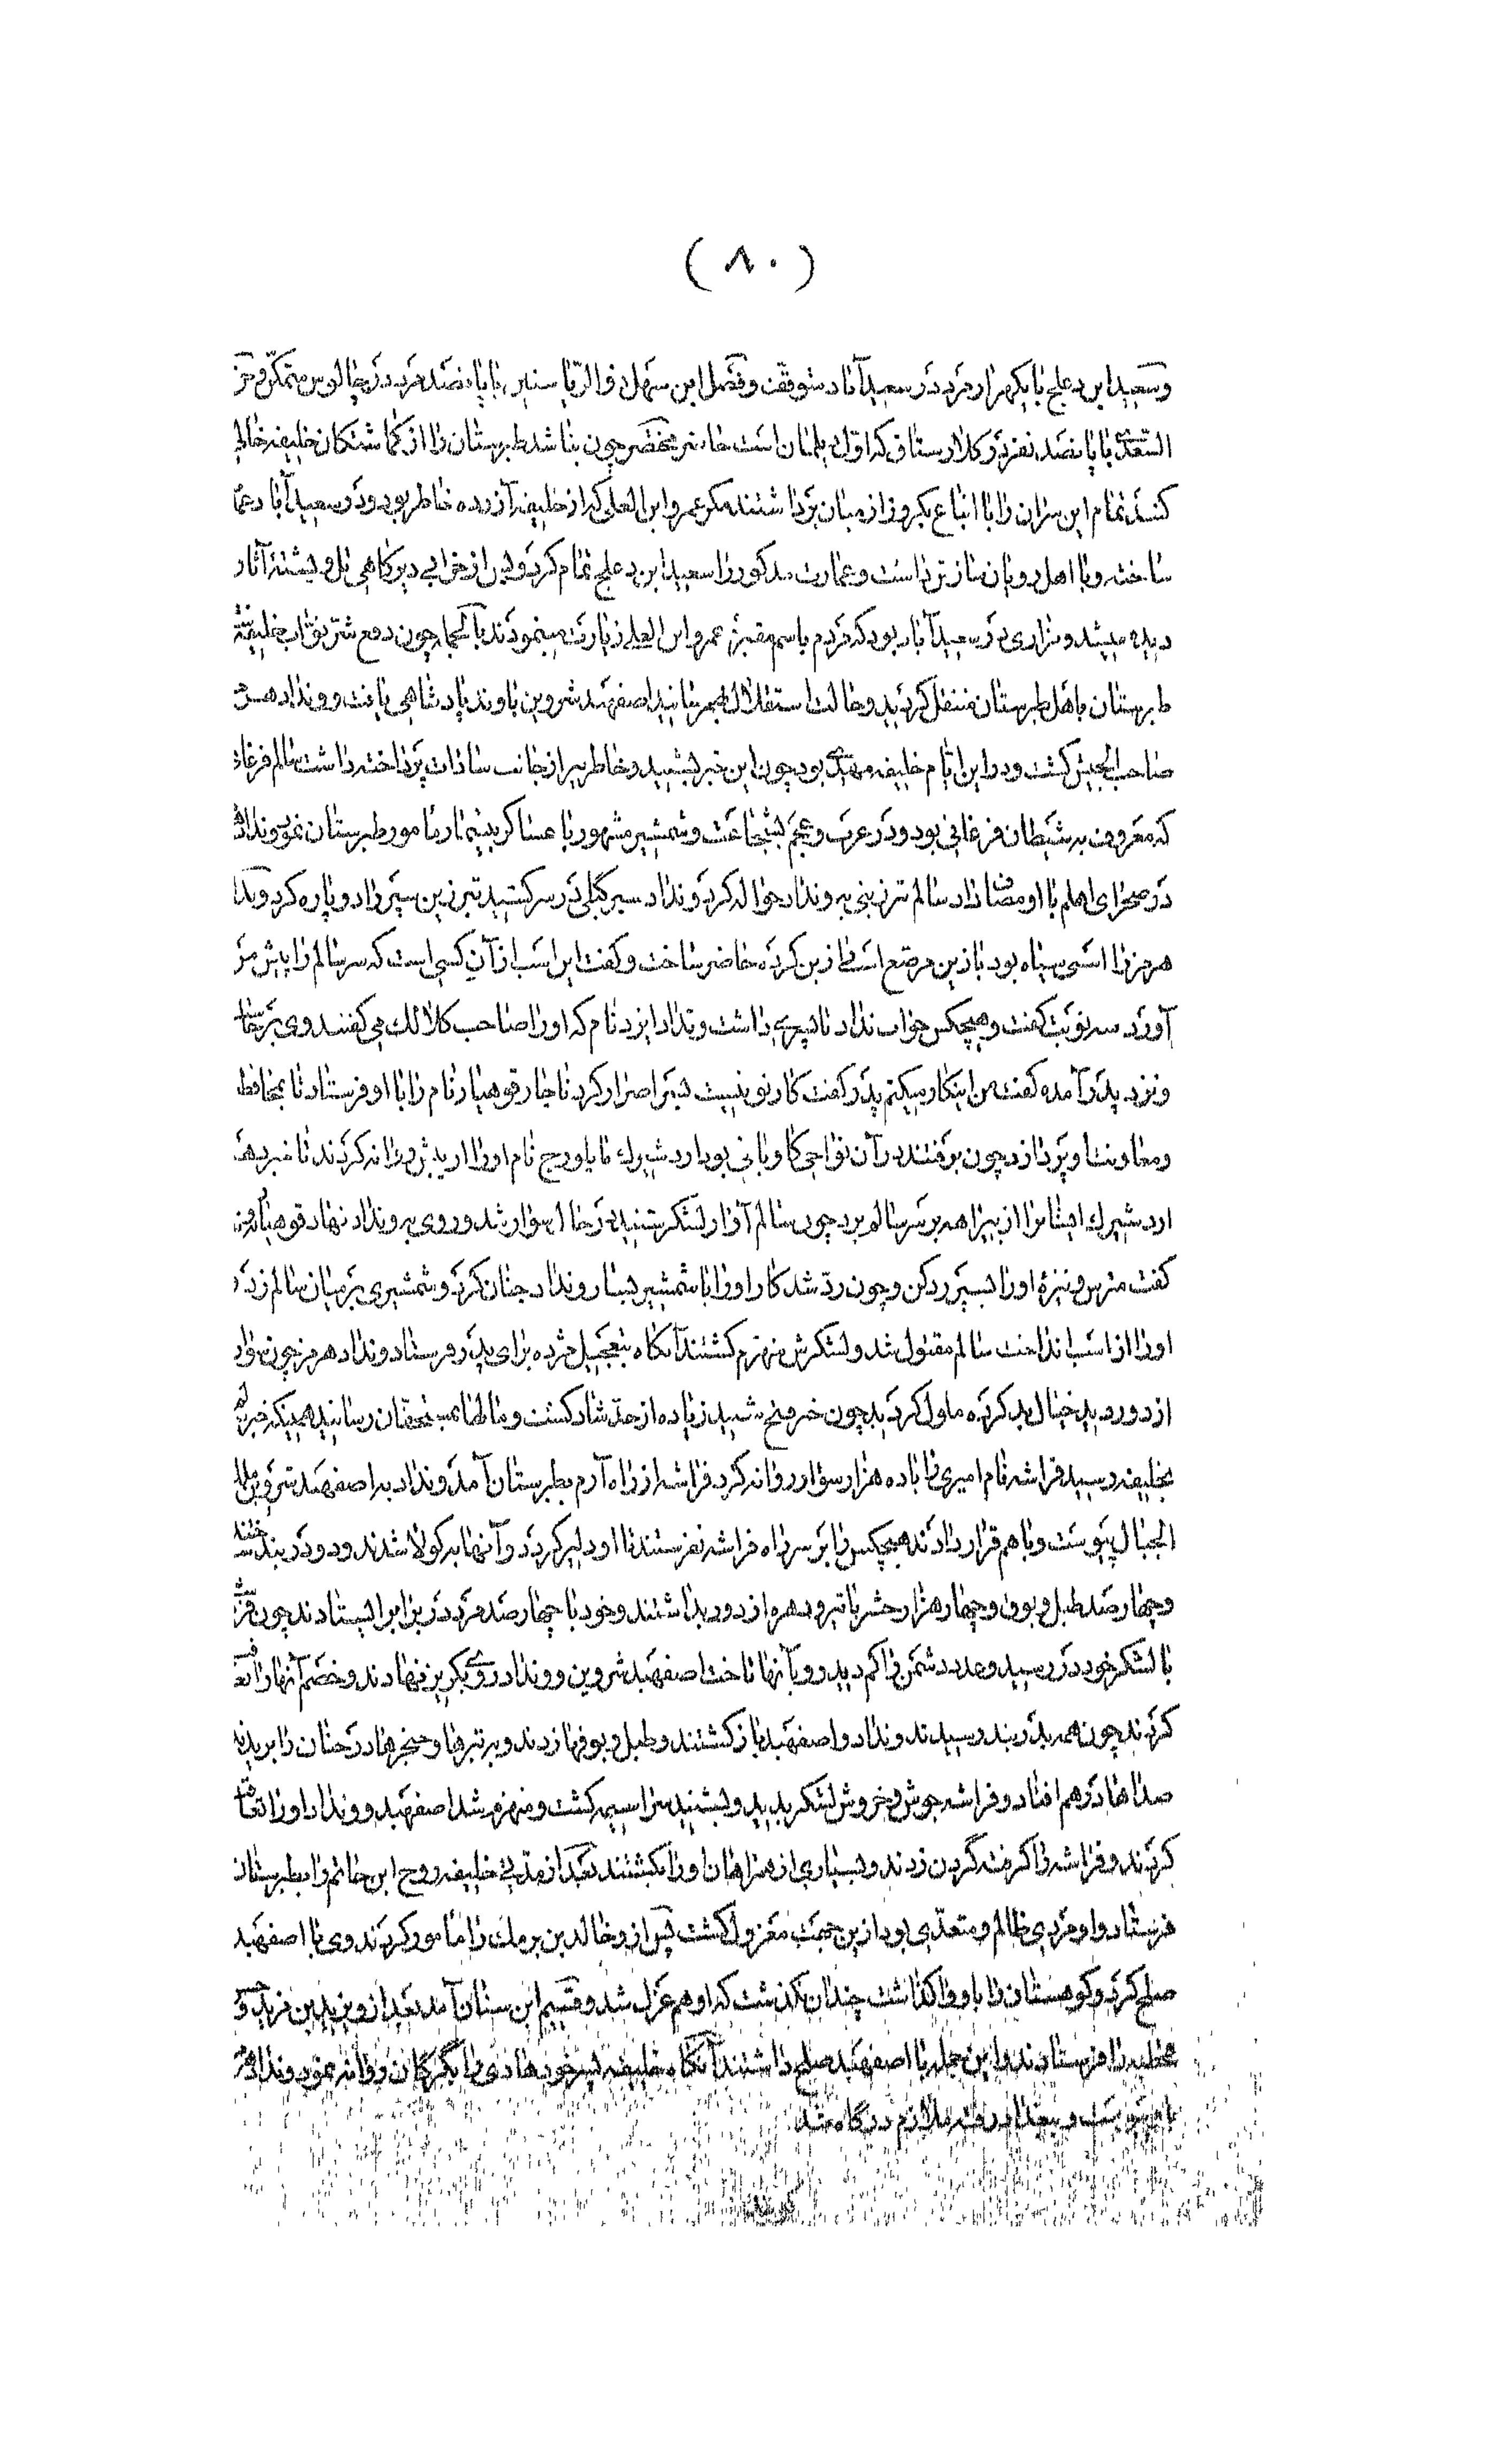 ( ۸۰ )
وسعید ابن دعلج با یکهزار مرد در سعیدآباد متوقف وفضل ابن سهل ذوالریاستین با پانصد مرد در چالوس متمکن و
السعدی با پانصد نفر در کلارستاق که اول دیلمان است حاضر مختصر چون بنا شد طبرستان را از گماشتگان خلیفه خالی
کنند تمام این سران را با اتباع یکروز از میان برداشتند مگر عمرو ابن العلی که از خلیفه آزرده خاطر بود ودر سعیدآباد
ساخته وبا اهل رویان ساز تر داست وعمارت مذکور را سعید ابن دعلج تمام کرد وپس از خرابی دیرگاهی تل وپشته آثار
دیده میشد ومزاری در سعیدآباد بود که مردم باسم مقبره عمرو ابن العلی زیارت مینمودند بالجمله چون دفع شر نواب خلیفه
طبرستان باهل طبرستان منتقل گردید وحالت استقلال بهمرسانید اصفهبد شروین باوند پادشاهی یافت وونداد هرمز
صاحب الجیش گشت ودر این ایام خلیفه مهدی بود چون این خبر بشنید وخاطر پر از جانب سادات پرداخته داشت سالم فرغانی
که معروف به شیطان فرغانی بود ودر عرب وعجم بشجاعت وشمشیر مشهور با عساکر بیشمار مأمور طبرستان نمود ونداد
در صحرای اهلم با او مصاف داد سالم تبرزینی به ونداد حواله کرد ونداد سپر گیلی در سر کشید تبرزین سپر را دو پاره کرد ونداد
هرمز را اسبی سیاه بود با زین مرصع اسب را زین کرده حاضر ساخت وگفت این اسب از آن کسی است که سر سالم را پیش من
آورد سه نوبت گفت وهیچکس جواب نداد تا پسری داشت ونداد ایزد نام که او را صاحب کلالک می گفتند وی برخاست
ونزد پدر آمده گفت من اینکار میکنم پدر گفت کار تو نیست پسر اصرار کرد ناچار قوهیار نام را با او فرستاد تا بمحافظت
ومعاونت او پردازد چون برفتند در آن نواحی گاوبانی بود اردشیرک تا یاورج نام او را از پیش روانه کردند تا خبر دهد
اردشیرک ایشانرا از بیراهه بر سر سالم برد چون سالم آواز لشکر شنید در حال سوار شد وروی به ونداد نهاد قوهیار
گفت مترس ونیزهٔ او را بسپر رد کن وچون رد شد کار او را با شمشیر بساز ونداد چنان کرد وشمشیری بر میان سالم زد و
او را از اسب انداخت سالم مقتول شد ولشکرش منهزم گشتند آنگاه بتعجیل مژده برای پدر فرستاد ونداد هرمز چون سوار
از دور دید خیال بد کرده ملول گردید چون خبر فتح شنید زیاده از حد شاد گشت ومناصب بمستحقان رسانید همینکه خبر
بخلیفه رسید فراشه نام امیری را با ده هزار سوار روانه کرد فراشه از راه آرم بطبرستان آمد ونداد به اصفهبد شروین ملک
الجبال پیوست وباهم قرار دادند هیچکس را بر سر راه فراشه نفرستند تا او دلیر گردد وآنها به کولا شدند ودو دربند ساختند
وچهارصد طبل وبوق وچهار هزار حشر با تبر ودهره از دور بداشتند وخود با چهارصد مرد در برابر ایستادند چون فراشه
با لشکر خود در رسید وعدد دشمن را کم دید رو بآنها تاخت اصفهبد شروین وونداد روی بگریز نهادند وخصم آنها را تعاقب
کردند چون همه بدربند رسیدند ونداد واصفهبد باز گشتند وطبل وبوقها زدند وبر تبرها وخنجرها درختان را بریدند
صداها درهم افتاد وفراشه جوش وخروش لشکر بدید وبشنید سراسیمه گشت ومنهزم شد اصفهبد وونداد او را تعاقب
کردند وفراشه را گرفته گردن زدند وبسیاری از همراهان او را بکشتند بعد از مدتی خلیفه روح ابن حاتم را بطبرستان
فرستاد واو مردی ظالم ومتعدی بود ازین جهت معزول گشت پس از او خالد بن برمک را مأمور کردند وی با اصفهبد
صلح کرد وکوهستان را باو وا گذاشت چندان نگذشت که او هم عزل شد وقسیم ابن سنان آمد بعد از او یزید بن مزید و
عطیه را فرستادند واین جمله با اصفهبد صلح داشتند آنگاه خلیفه پسر خود هادی را بگرگان روانه نمود ونداد هرمز
باو پیوست وببغداد رفته ملازم درگاه شد